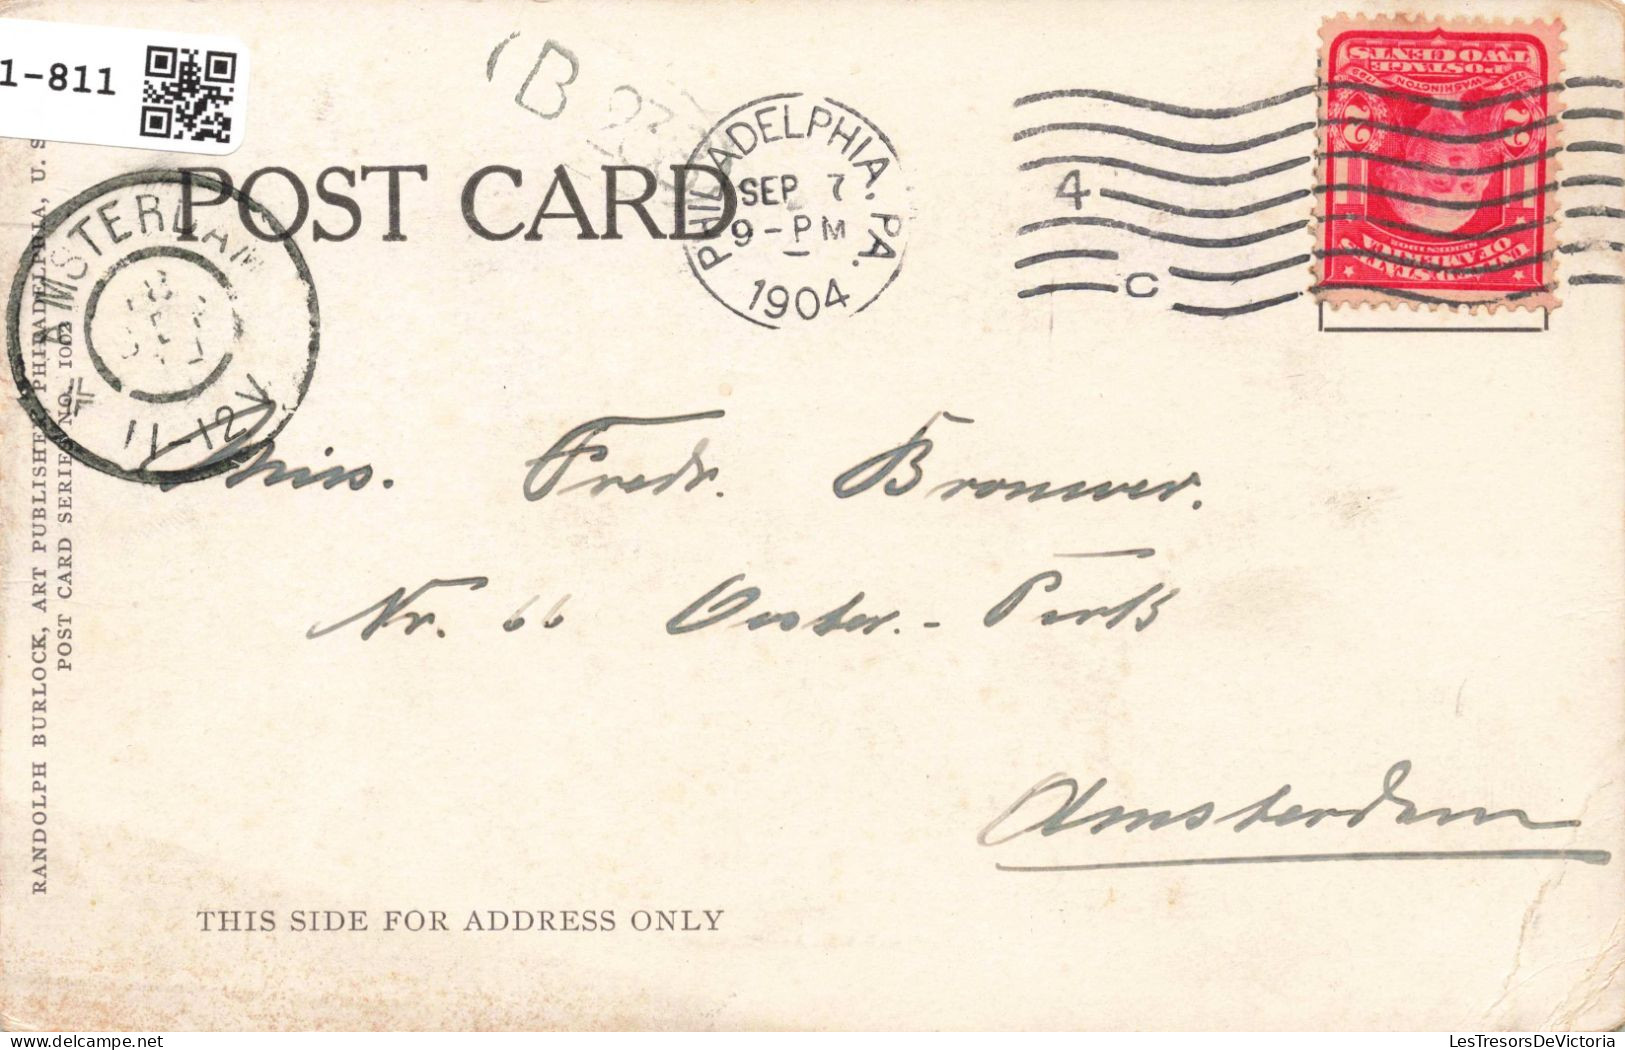 1-811
POST CARD
PHILADELPHIA. PA.
SEP 7
9-PM
1904
4
C
POSTAGE
TWO CENTS
1732 WASHINGTON 1799
2 2
SERIES 1902
UNITED STATES
OF AMERICA
B
AMSTERDAM
11-12V
RANDOLPH BURLOCK, ART PUBLISHER, PHILADELPHIA, U. S.
POST CARD SERIES NO. 1002
Miss. Fredr. Brouwer.
Nr. 66 Ooster.- Park
Amsterdam
THIS SIDE FOR ADDRESS ONLY
LesTresorsDeVictoria